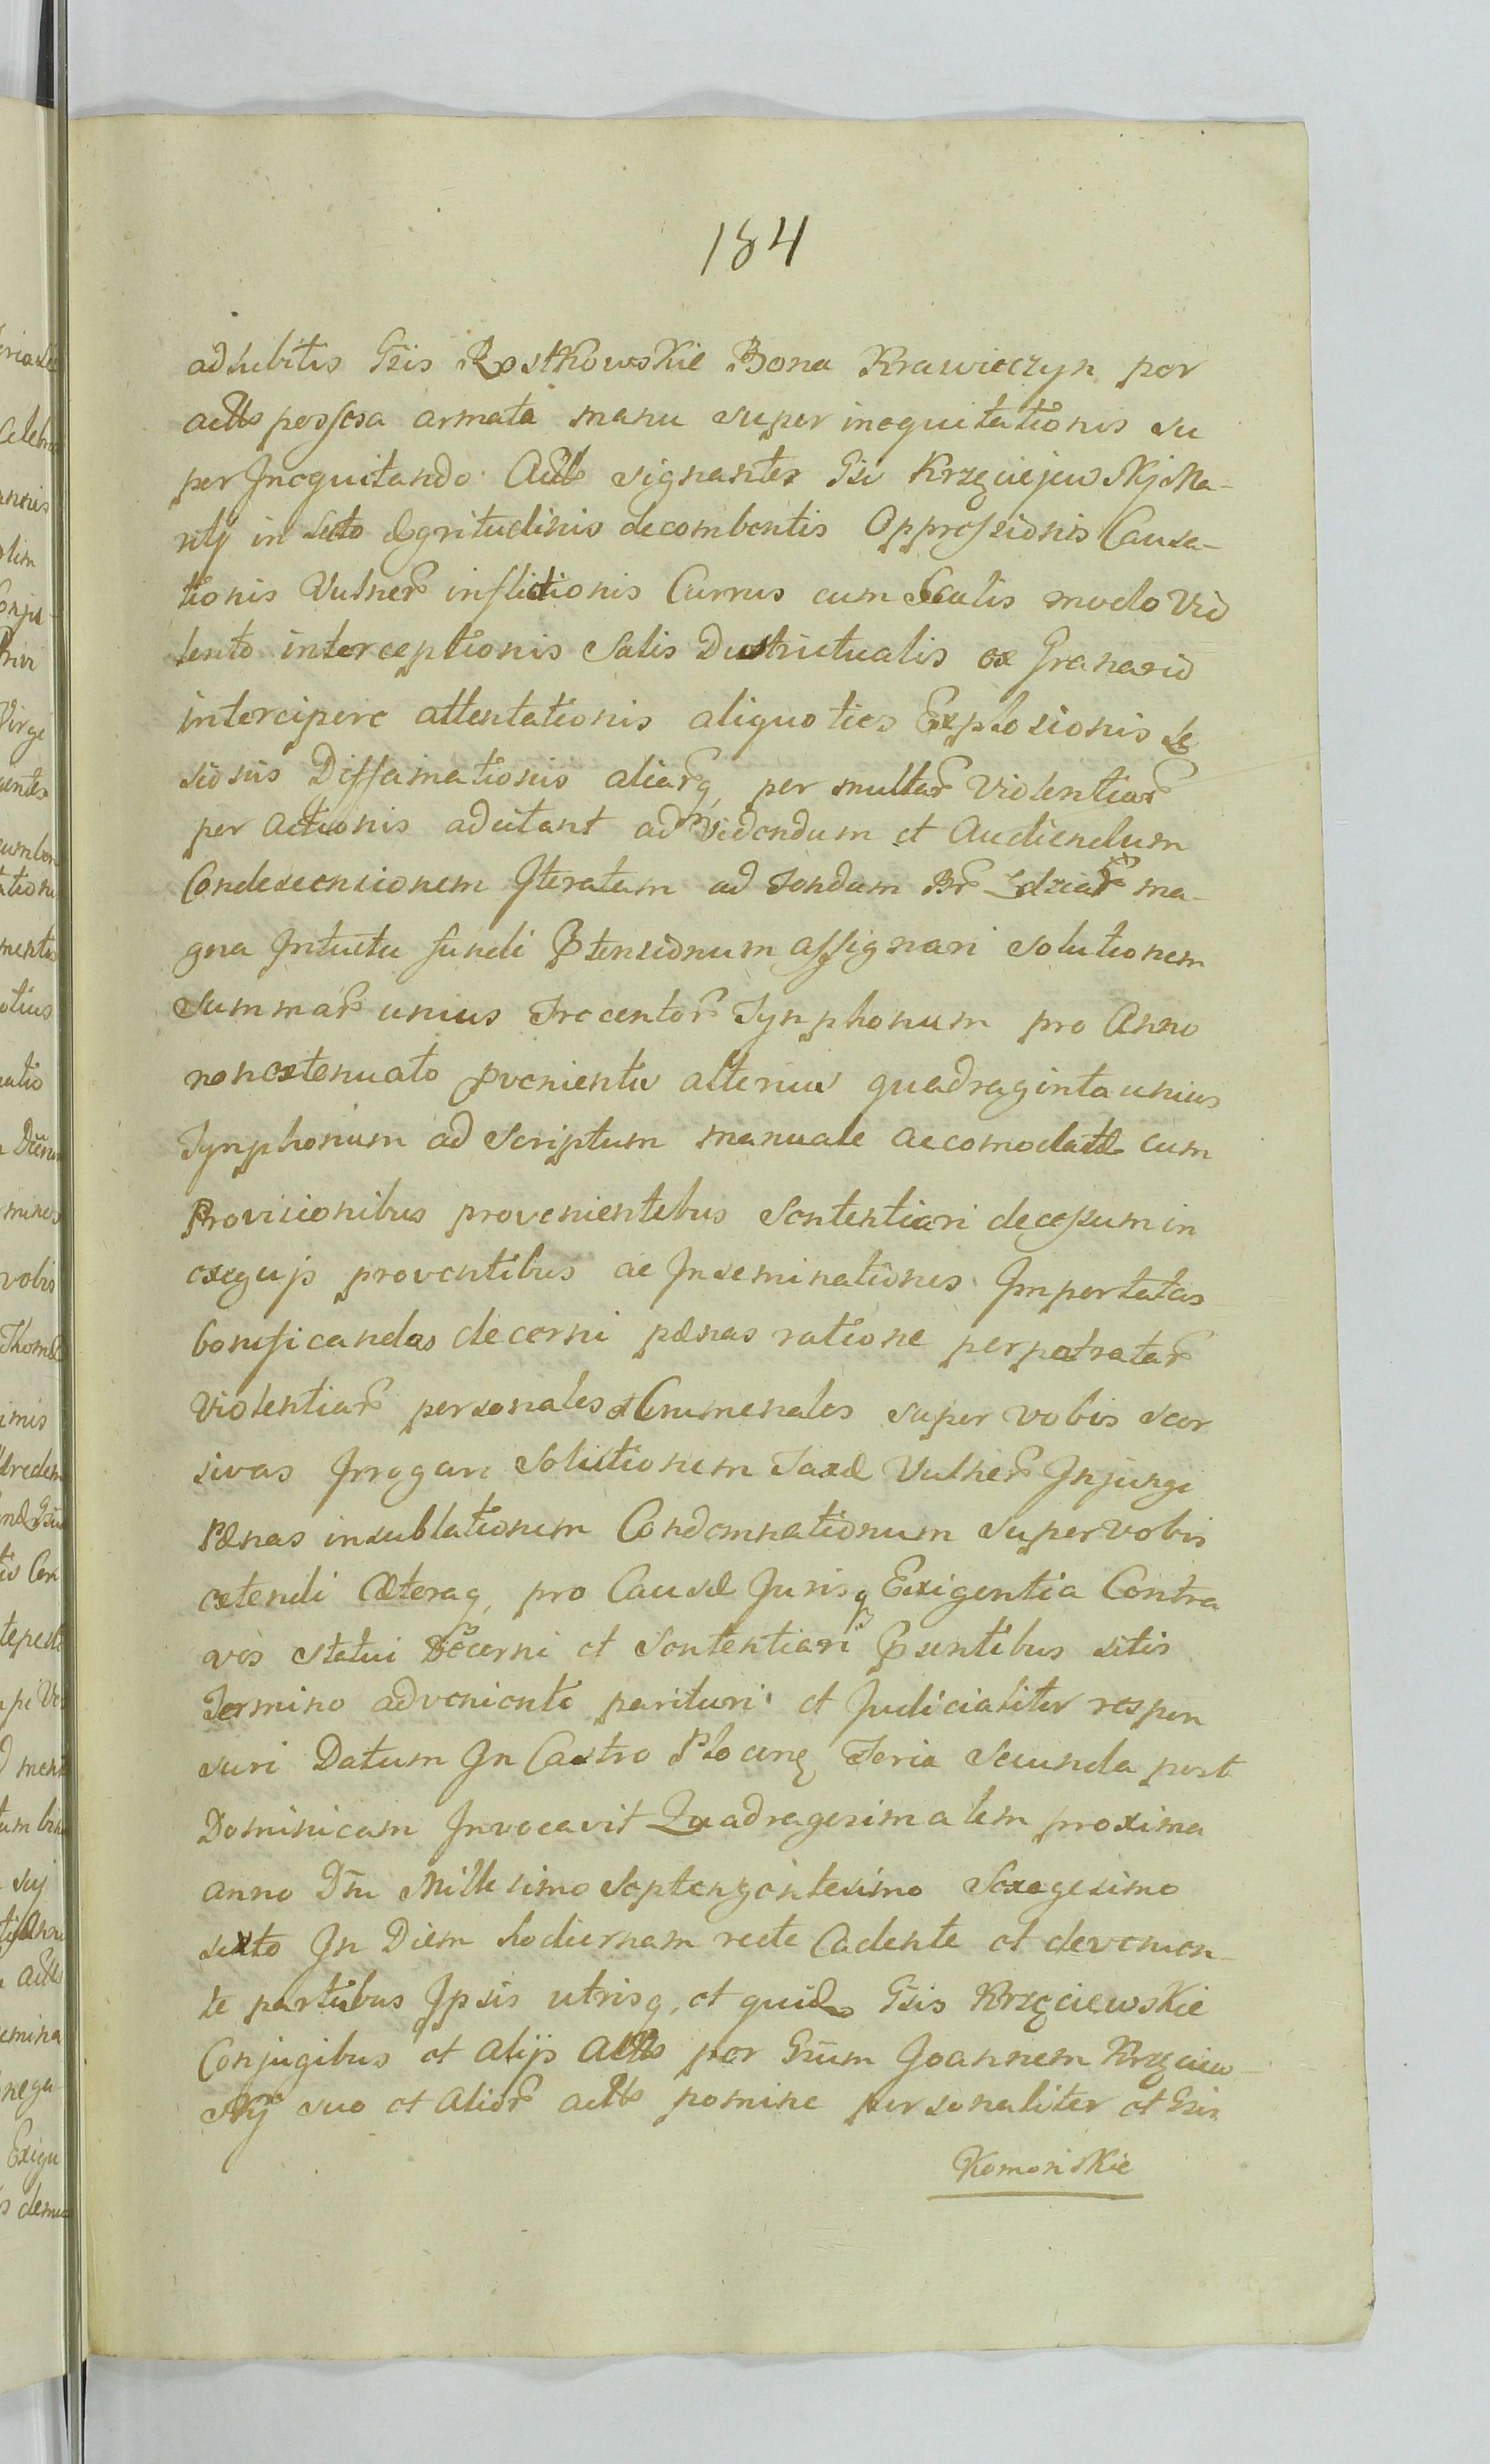 184
adhibitis Gsis Rostkowskie Bona Krawieczyn per
actts possesa armata manu super inequitationis su
per Inequitando Actts signanter Gsi Krzęciejewskj Ma-
ritj in lecto Ægritudinis decombentis Oppressionis Causa-
tionis Vulner inflictionis Currus cum Scalis modo Vio
lento interceptionis Salis Districtualis ex Granario
intercipere attentationis aliquoties Explosionis Le
sionis Diffamationis aliarq, per multar Violentiar
per actionis adcitant ad Videndum et Audiendum
Condescensionem Iteratam ad fondum Br Zdziar ma-
gna Intuitu fundi Ptensionum assignari Solutionem
Summar unius Trecentor Tynphonum pro Anno
nonextenuato pvenientis alterius quadraginta unius
Tynphonum ad Scriptum manuale accomodatæ cum
Provisionibus provenientibus Sententiari decessum in
exeguis proventibus ac Inseminationes Importatas
bonificandas decerni pænas ratione perpetratar
Violentiar personales & Criminales super vobis scor
sivas Irrogari Solutionem Taxæ Vulner Injungi
Pænas insublationem Condemnationum super vobis
extendi Cæteraq, pro Causæ Jurisq Exigentia Contra
vos Statui Decerni et Sententiari Psentibus sitis
Termino adveniente parituri et Judicialiter respon
suri Datum In Castro Plocens Feria Secunda post
Dominicam Invocavit Quadragesimalem proxima
anno Dni Millesimo Septengentesimo Sexagesimo
sexto In Diem hodiernam recte Cadente et devenien-
te partibus Ipsis utrisq, et quidem Gsis Krzęciewskie
Conjugibus et alijs Actts per Gsum Joannem Krzęciew-
skj suo et alior actts nomine personaliter et Gsis
Komoriskie